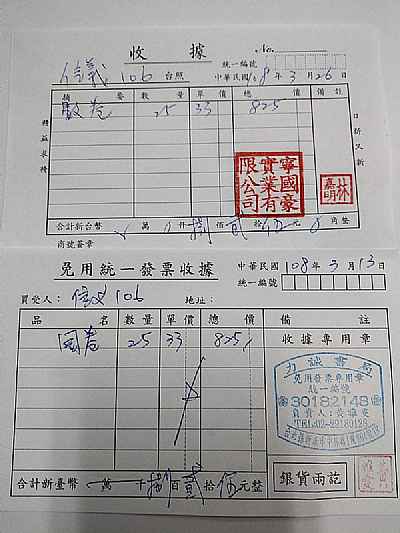 收據 No.
統一編號
信義 106 台照 中華民國108年3月26日
摘要 數量 單價 總價 備註
數卷 25 33 825
精益求精
日新又新
寧國豪實業有限公司
林
合計新台幣 萬 仟捌佰貳拾伍元 角整
商號蓋章
免用統一發票收據
中華民國108年3月13日
統一編號
買受人：信义 106 地址：
品名 數量 單價 總價 備註
國卷 25 33 825
收據專用章
力誠書局
免用發票專用章
統一編號
30182148
銀貨兩訖
合計新臺幣 萬 千捌百貳拾伍元整